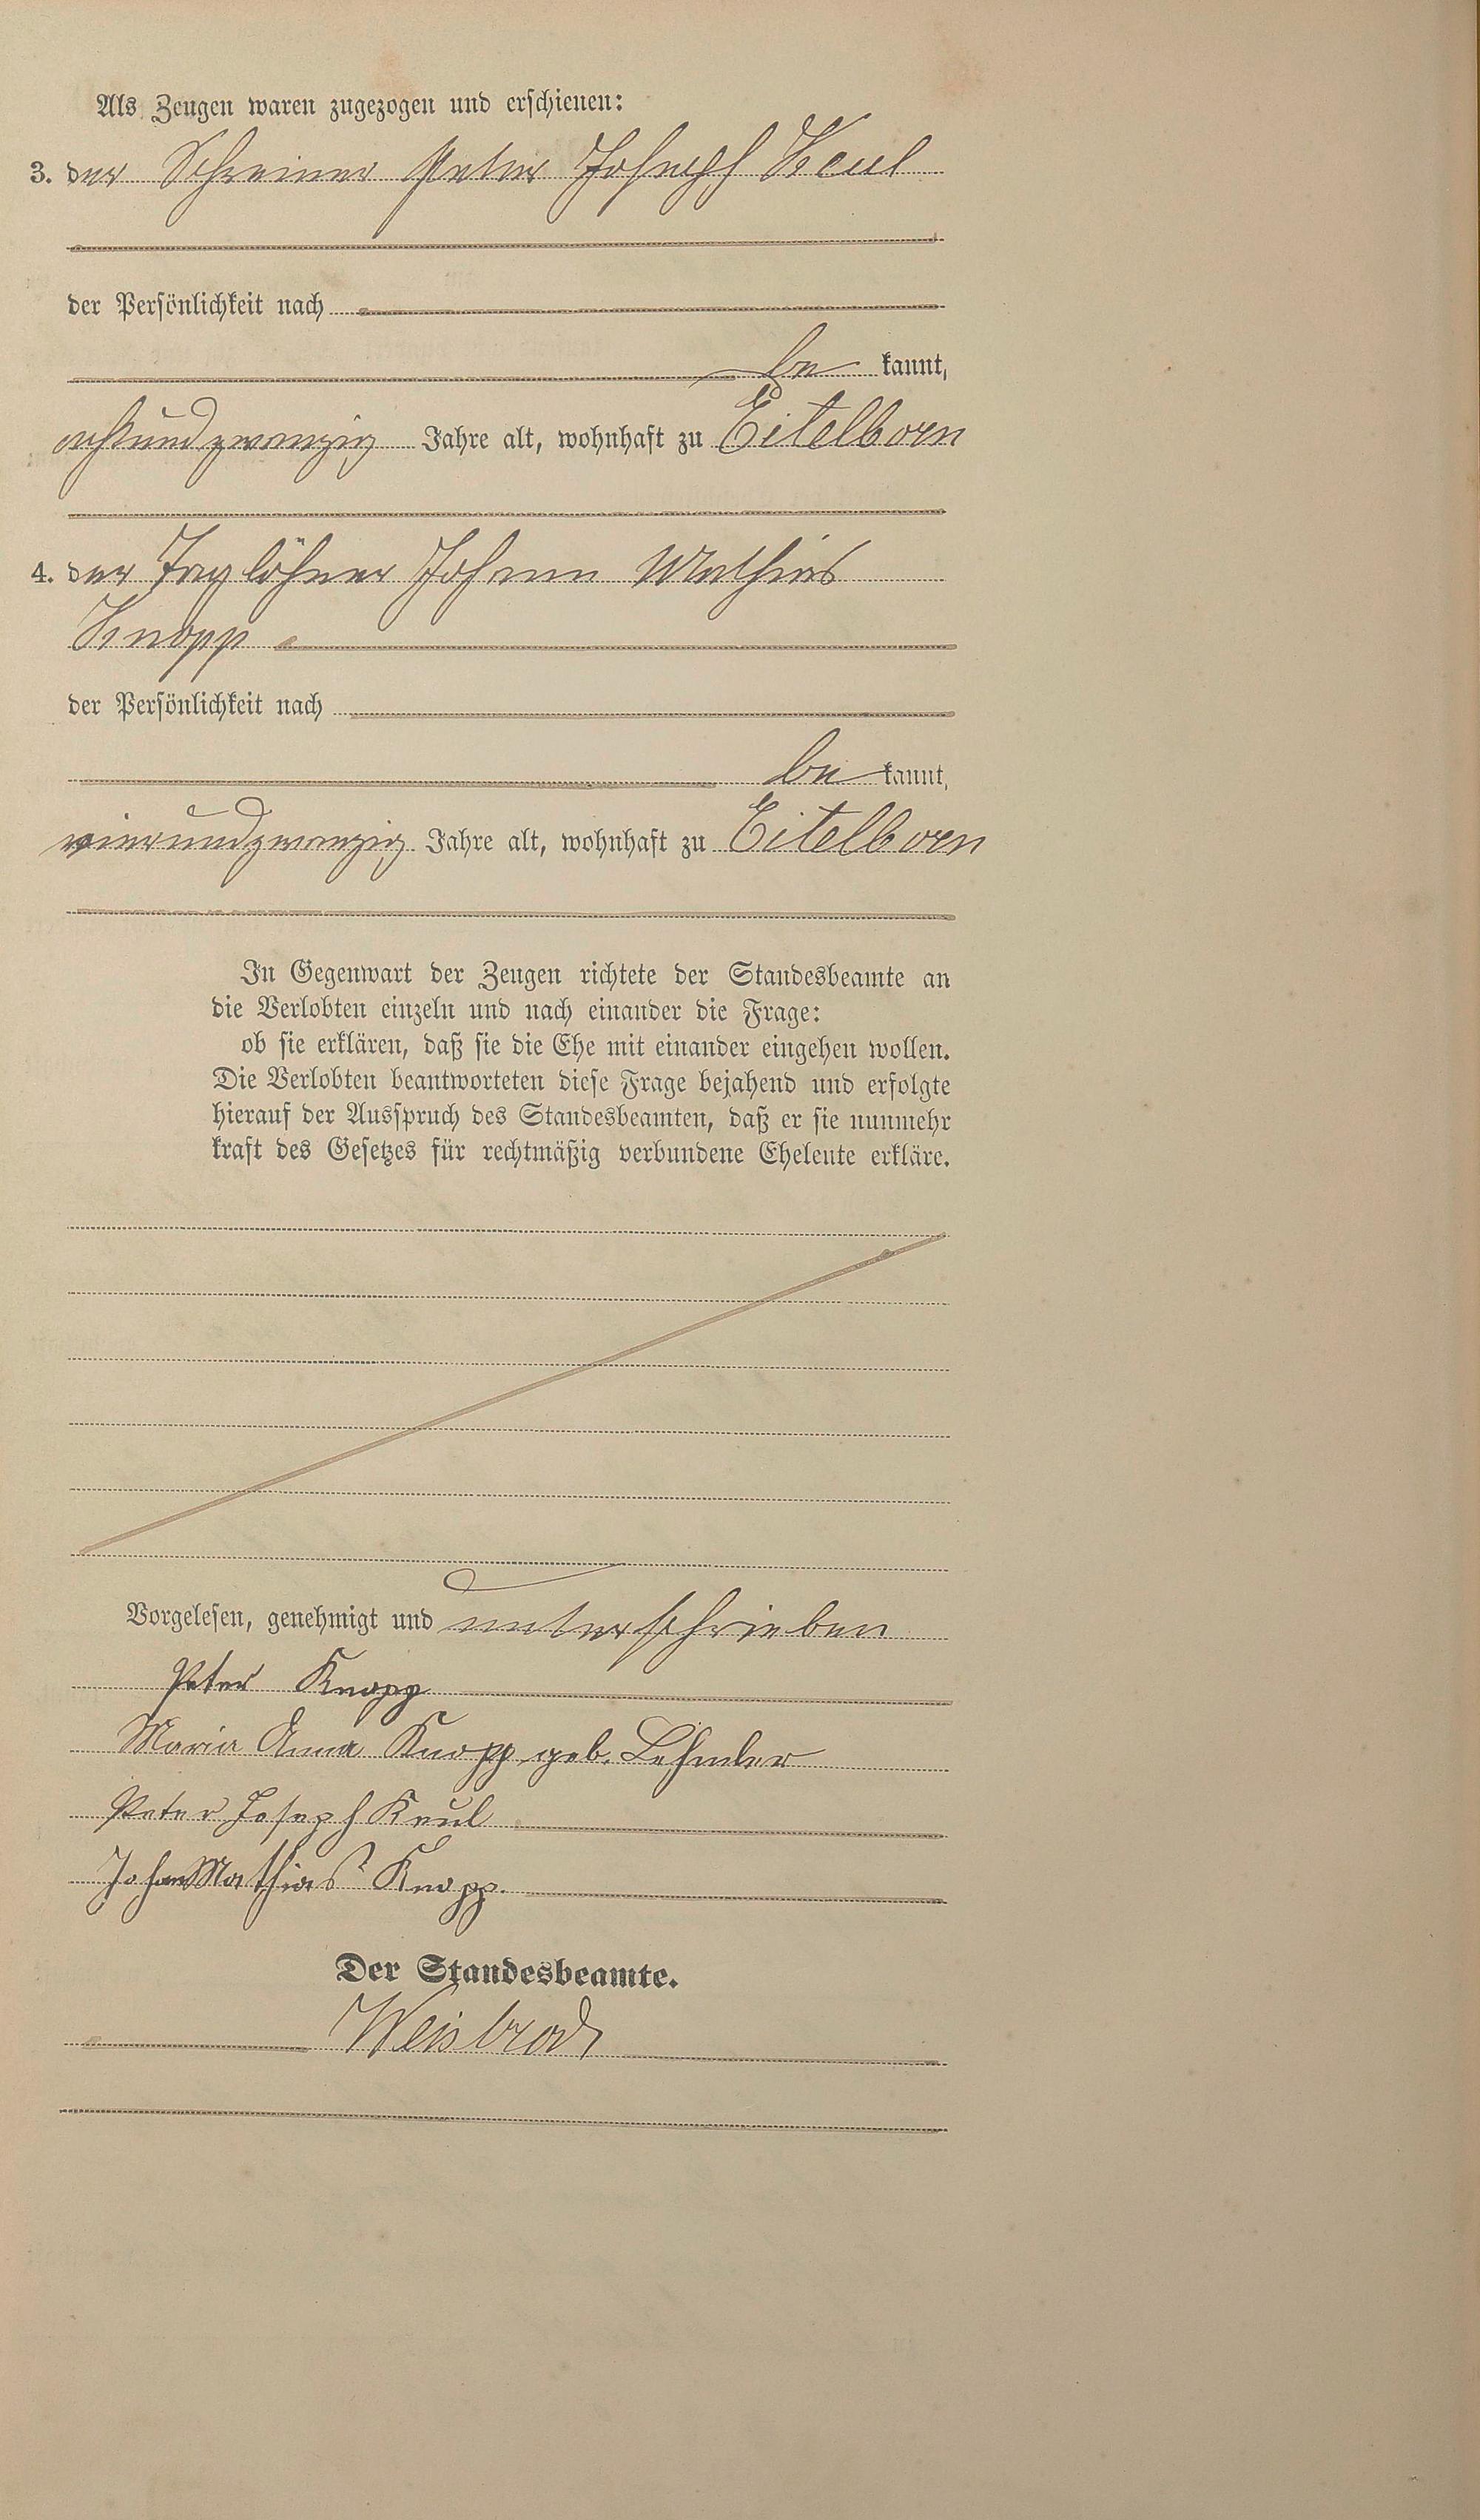 Als Zeugen waren zugezogen und erschienen:
3. der Schreiner Peter Joseph Keul
der Persönlichkeit nach
be kannt,
achtundzwanzig Jahre alt, wohnhaft zu Eitelborn
4. der Taglöhner Johann Mathias
Knopp
der Persönlichkeit nach
be kannt,
vierundzwanzig Jahre alt, wohnhaft zu Eitelborn
In Gegenwart der Zeugen richtete der Standesbeamte an
die Verlobten einzeln und nach einander die Frage:
ob sie erklären, daß sie die Ehe mit einander eingehen wollen.
Die Verlobten beantworteten diese Frage bejahend und erfolgte
hierauf der Ausspruch des Standesbeamten, daß er sie nunmehr
kraft des Gesetzes für rechtmäßig verbundene Eheleute erkläre.
Vorgelesen, genehmigt und unterschrieben
Peter Knopp
Maria Anna Knopp geb. Lehmler
Peter Joseph Keul
Johann Mathias Knopp.
Der Standesbeamte.
Weisbrod